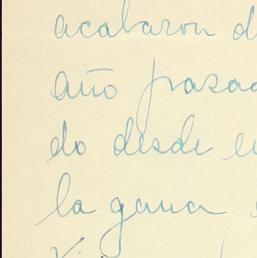 acabaron d
año pasad
do desde e
la gana